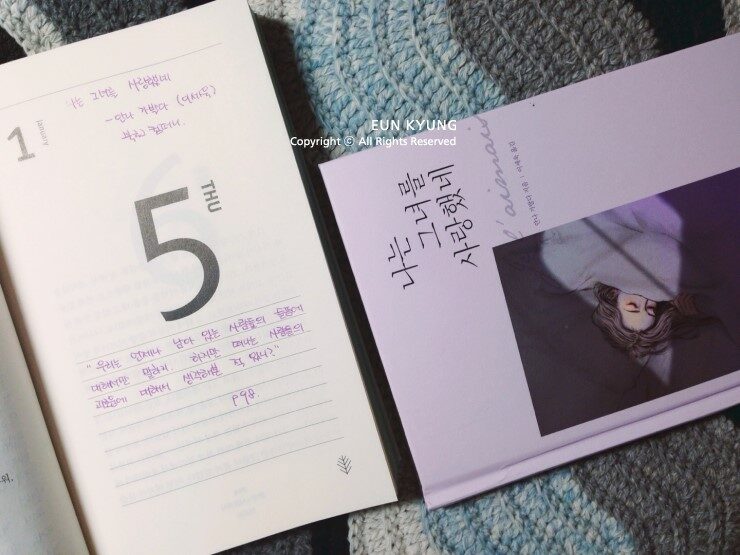 1
January
나는 그녀를 사랑했네
- 안나 가발다 (이세욱)
5
THU
"우리는 언제나 남아 있는 사람들의 슬픔에
대해서만 말하지. 하지만 떠나는 사람들의
괴로움에 대해서 생각해본 적 있니?"
p98.
워.
EUN KYUNG
Copyright ⓒ All Rights Reserved
나는
그녀를
사랑했네
l'aimais
안나 가발다 지음 | 이세욱 옮김